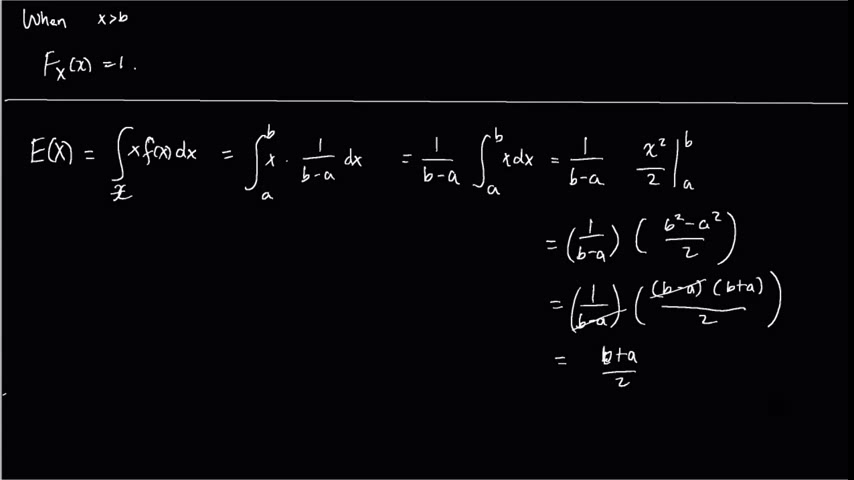 When x>b
F_X(x) = 1.
E(X) = ∫_𝒳 x f(x) dx = ∫_a^b x · 1/(b-a) dx = 1/(b-a) ∫_a^b x dx = 1/(b-a) x²/2 |_a^b
= (1/(b-a)) ((b²-a²)/2)
= (1/(b-a)) ((b-a)(b+a)/2)
= (b+a)/2